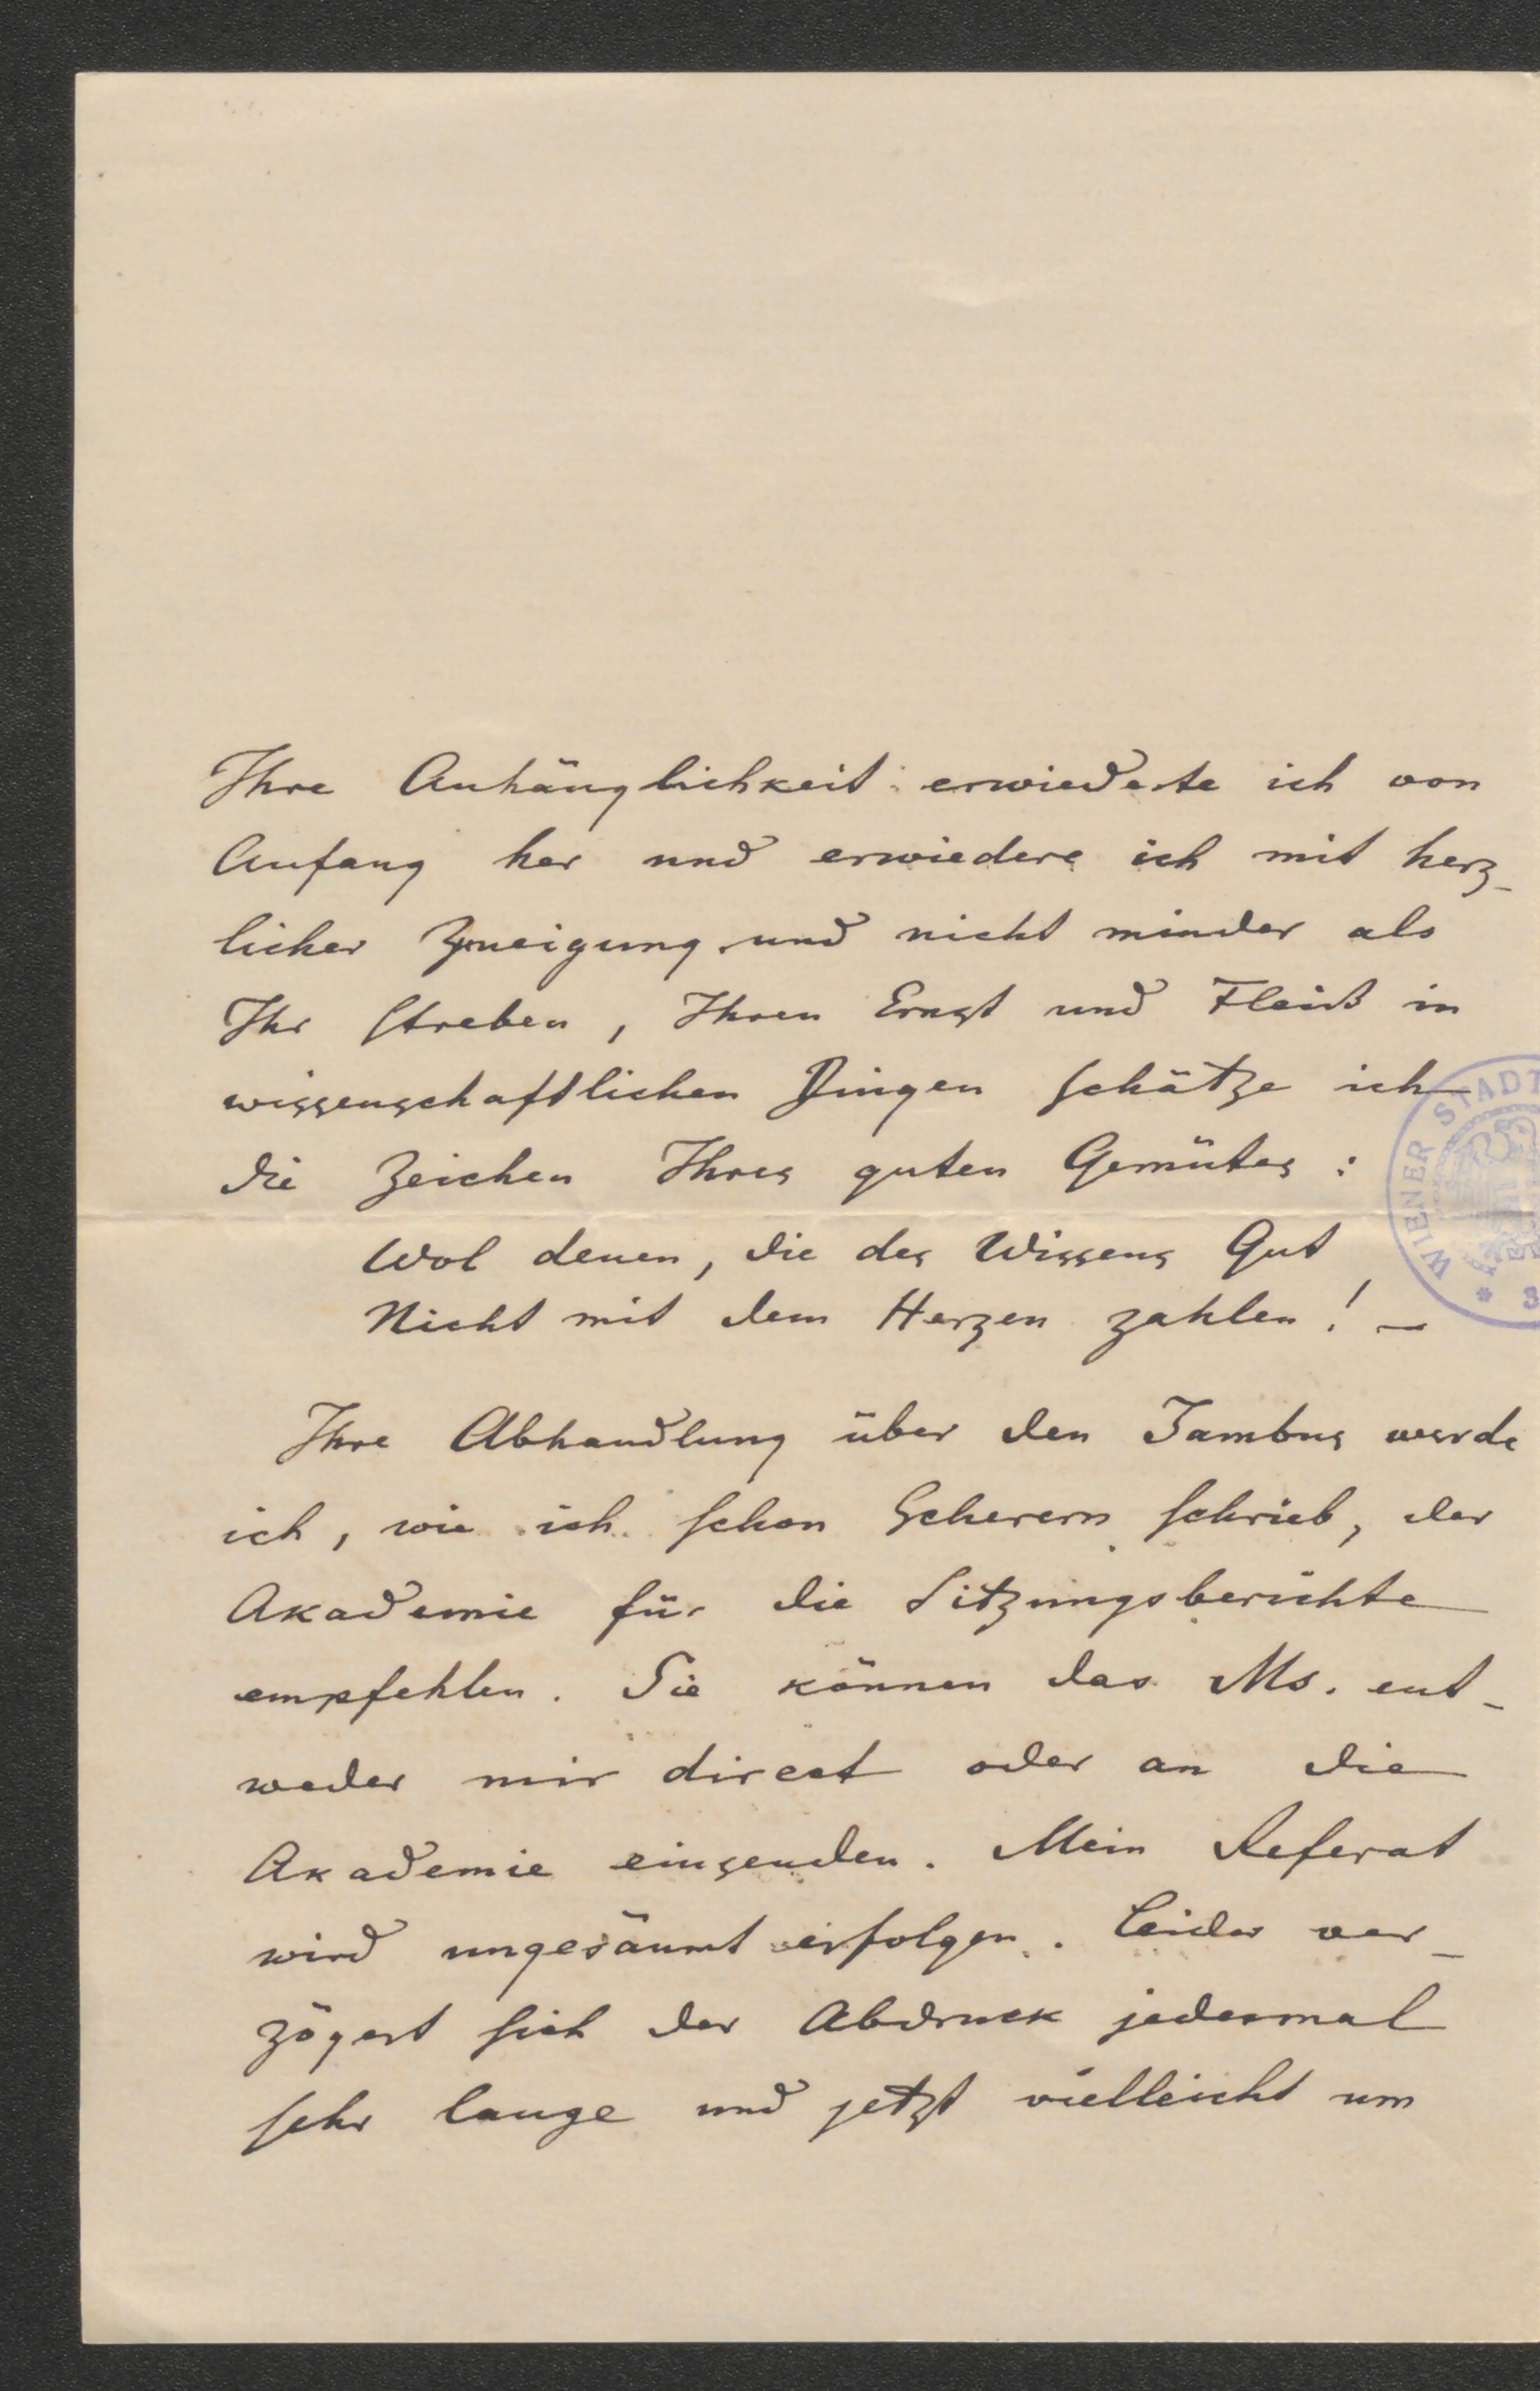 Ihre Anhänglichkeit erwiederte ich von
Anfang her und erwiedere ich mit herz-
licher Zuneigung und nicht minder als
Ihr Streben, Ihren Ernst und Fleiß in
wissenschaftlichen Dingen schätze ich
die Zeichen Ihres guten Gemütes:
Wol denen, die des Wissens Gut
Nicht mit dem Herzen zahlen! –
Ihre Abhandlung über den Iambus werde
ich, wie ich schon Scherern schrieb, der
Akademie für die Sitzungsberichte
empfehlen. Sie können das Ms. ent-
weder mir direct oder an die
Akademie einsenden. Mein Referat
wird ungesäumt erfolgen. Leider ver-
zögert sich der Abdruck jedesmal
sehr lange und jetzt vielleicht um
WIENER STADT